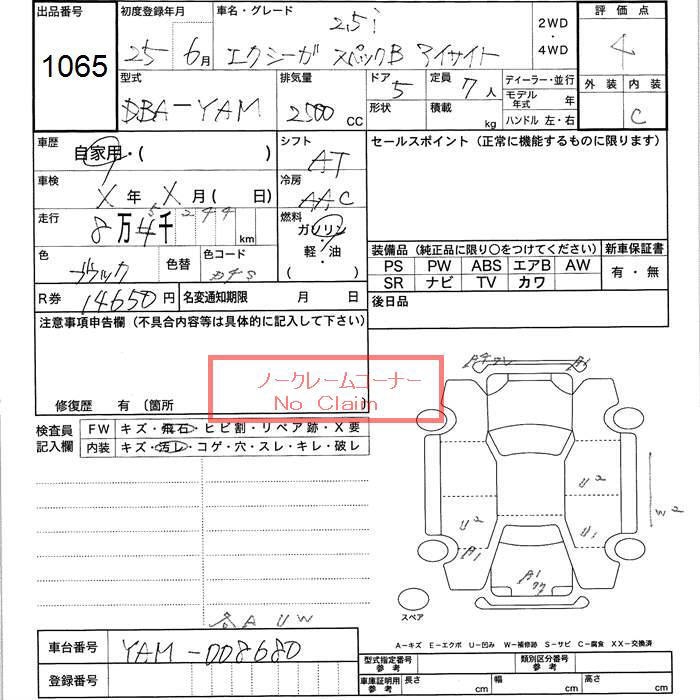 出品番号 初度登録年月 車名・グレード 2.5i 2WD ・ 4WD 評価点 4
1065 25 6月 エクシーガ スペックB アイサイト 外装 内装
型式 排気量 ドア 5 定員 7人 ディーラー・並行
DBA-YAM 2500 CC 形状 積載 kg モデル年式 年 C
ハンドル 左・右
車歴 自家用・( ) シフト AT セールスポイント（正常に機能するものに限ります）
車検 X年 X月( 日) 冷房 AAC
走行 8万4千244 km 燃料 ガソリン・軽・油 ( )
色 ブラック 色替 色コード 装備品（純正品に限り〇をつけてください） 新車保証書
PS PW ABS エアB AW 有・無
SR ナビ TV カワ
R券 14650円 名変通知期限 月 日 後日品
注意事項申告欄（不具合内容等は具体的に記入して下さい）
ノークレームコーナー
No Claim
修復歴 有〔箇所
検査員記入欄 FW キズ・飛石・ヒビ割・リペア跡・X要
内装 キズ・汚レ・コゲ・穴・スレ・キレ・破レ
U2
W2
U2
U1
A1
A1
スペア
各AUW
A-キズ E-エクボ U-凹み W-補修跡 S-サビ C-腐食 XX-交換済
車台番号 YAM-008680 型式指定番号 参考 類別区分番号 参考
登録番号 車庫証明用 参考 長さ cm 幅 cm 高さ cm